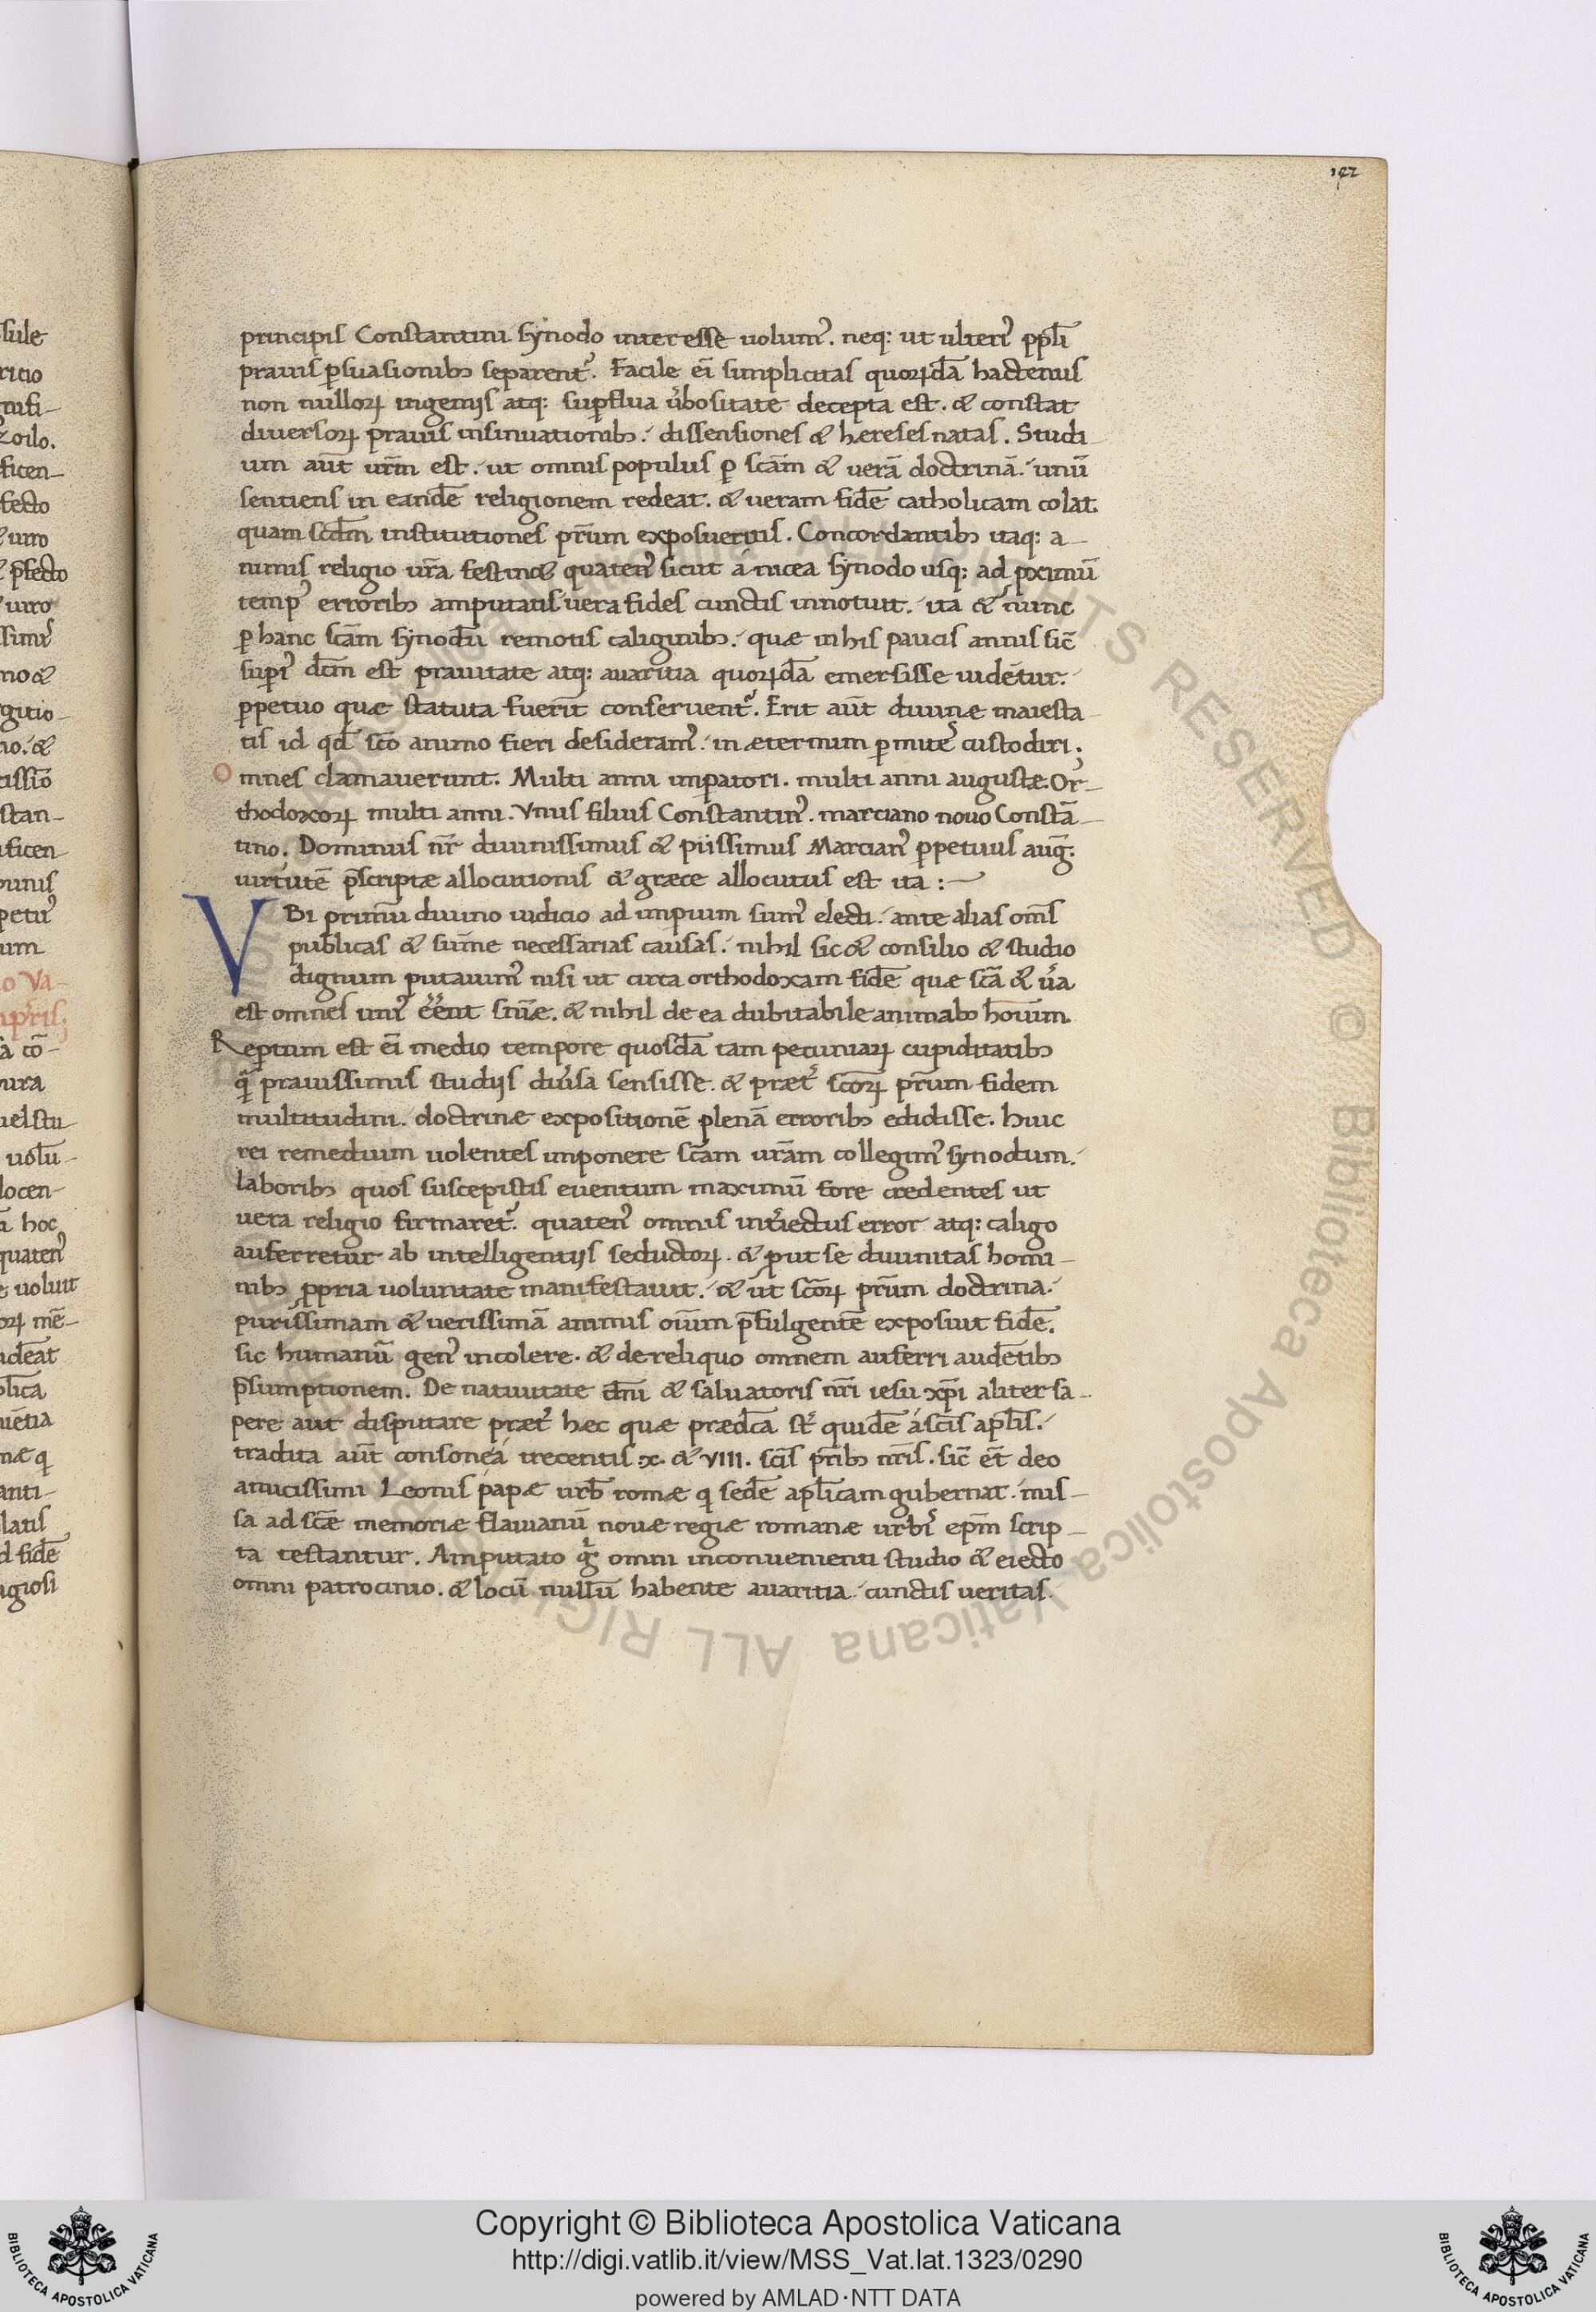 192
principis Constantini synodo interesse uolum᾽. neq: ut ulteri᾽ ppl̄i
prauis p̱suasionib; separent᾽. Facile ei̅ simplicitas quoꝝdā hactenus
non nulloꝝ ingeniis atq: sup̱flua u᾽bositate decepta est. & constat
diuersoꝝ prauis insinuationib; dissensiones & hereses natas. Studi-
um aut̄ ur̄m est. ut omnis populus ꝑ scām & uerā doctrinā. unū
sentiens in eandē religionem redeat. & ueram fidē catholicam colat.
quam scd̄m institutiones pr̄um exposueritis. Concordantib; itaq: a-
nimis religio ur̄a festin& quaten᾽ sicut á nicea synodo usq: ad ꝓximū
temp᾽ errorib; amputatis uera fides cunctis innotuit. ita & nunc
ꝑ hanc scām synodū remotis caliginib; quæ in his paucis annis sic̄
supi᾽ dc̄m est prauitate atq: auaritia quoꝝdā emersisse uidētur.
ꝑpetuo quæ statuta fueri̅t conseruent᾽. Erit aut̄ diuinæ maiesta-
tis id qd̄ scō animo fieri desideram᾽. in æternum ꝑmitte᾽ custodiri.
Omnes clamauerunt. Multi anni imꝑatori. multi anni augustæ. Or-
thodoxoꝝ multi anni. Vnus filius Constantin᾽. marciano nouo Constā-
tino. Dominus nr̄ diuinissimus & piissimus Marcian᾽ ꝑpetuus aug̅.
uirtutē p̄scriptæ allocutionis & græce allocutus est ita:
VBi primū diuino iudicio ad impium sum᾽ electi. ante alias om̄s
publicas & sum̄e necessarias causas. nihil sic & consilio & studio
dignum putauim᾽ nisi ut circa orthodoxam fidē quæ scā & u᾽a
est omnes uni᾽ ee᾽nt sn̄iæ. & nihil de ea dubitabile animab; hoium̄
Reptum est ei̅ medio tempore quosdā tam pecuniaꝝ cupiditatib;
q̄ prauissimis studiis diu᾽sa sensisse. & præt᾽ scōꝝ pr̄um fidem
multitudini. doctrinæ expositionē plenā errorib; edidisse. huic
rei remedium uolentes imponere scām ur̄am collegim᾽ synodum.
laborib; quos suscepistis euentum maximū fore credentes ut
uera religio firmaret᾽. quaten᾽ omnis int᾽iectus error atq: caligo
auferretur ab intelligentiis seductoꝝ. & ꝓut se diuinitas homi-
nib; ꝓpria uoluntate manifestauit. & ut scōꝝ pr̄um doctrina.
purissimam & uerissimā animis oi̅um p̄fulgentē exposuit fidē.
sic humanū gen᾽ incolere. & de reliquo omnem auferri audētib;
p̄sumptionem. De natiuitate dn̄i & saluatoris nr̄i iesu xp̄i aliter sa-
pere aut disputare præt᾽ hæc quæ prædc̄a st᾽ quidē á scīs apl̄is.
tradita aut̄ consone á trecentis .x. & VIII. scīs pr̄ib; nr̄is. sic̄ et̄ deo
amicissimi Leonis papæ urb̄ romæ q sedē apl̄icam gubernat. mis-
sa ad scē memoriæ flauianū nouæ regiæ romanæ urbi᾽ ep̄m scrip-
ta testantur. Amputato g᾽ omni inconuenienti studio & eiecto
omni patrocinio. & locū nullū habente auaritia. cunctis ueritas
Copyright © Biblioteca Apostolica Vaticana
http://digi.vatlib.it/view/MSS_Vat.lat.1323/0290
powered by AMLAD·NTT DATA